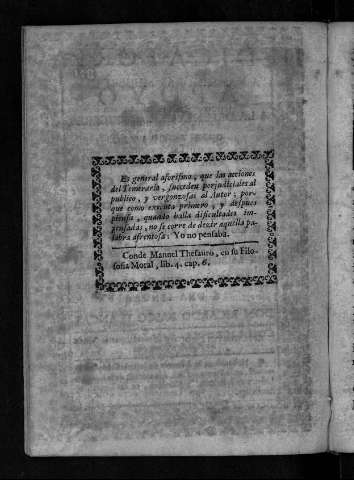 Es general aforismo, que las acciones
del Temerario, suceden perjudiciales al
publico, y vergonzosas al Autor; por-
que como executa primero, y despues
piensa, quando halla dificultades im-
pensadas, no se corre de decir aquella pa-
labra afrentosa: Yo no pensaba.
Conde Manuel Thesauro, en su Filo-
sofia Moral, lib. 4. cap. 6.